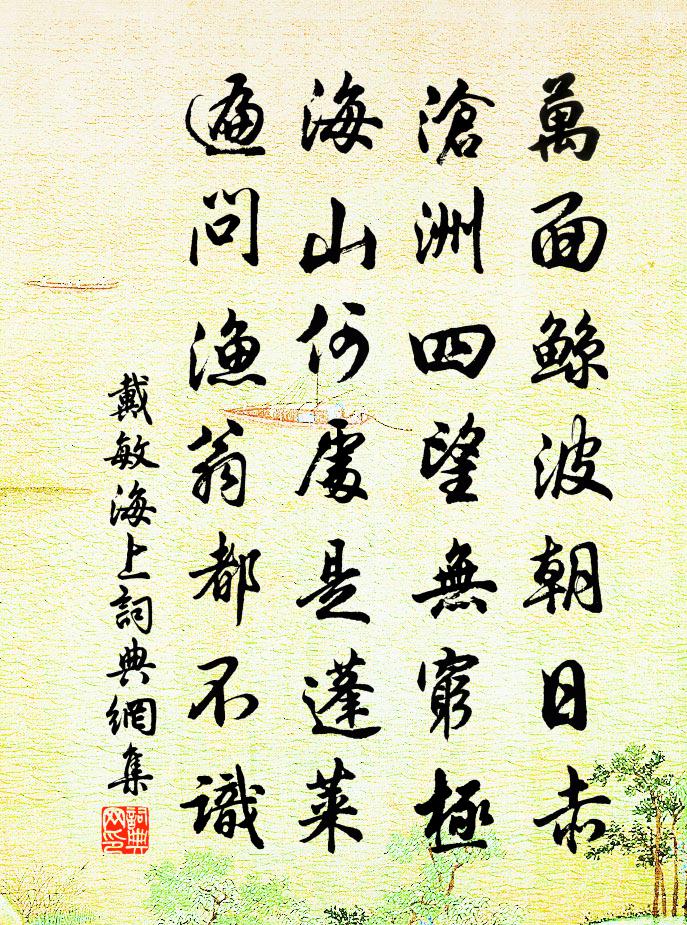 萬面鯨波朝日赤
滄洲四望無窮極
海山何處是蓬萊
遍問漁翁都不識
戴敏海上詞典網集
詞典網印